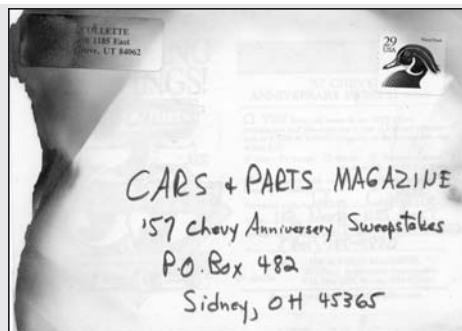 COLLETTE
1185 East
UT 84062
29
USA
Wood Duck
CARS & PARTS MAGAZINE
'57 Chevy Anniversery Sweepstakes
P.O. Box 482
Sidney, OH 45365